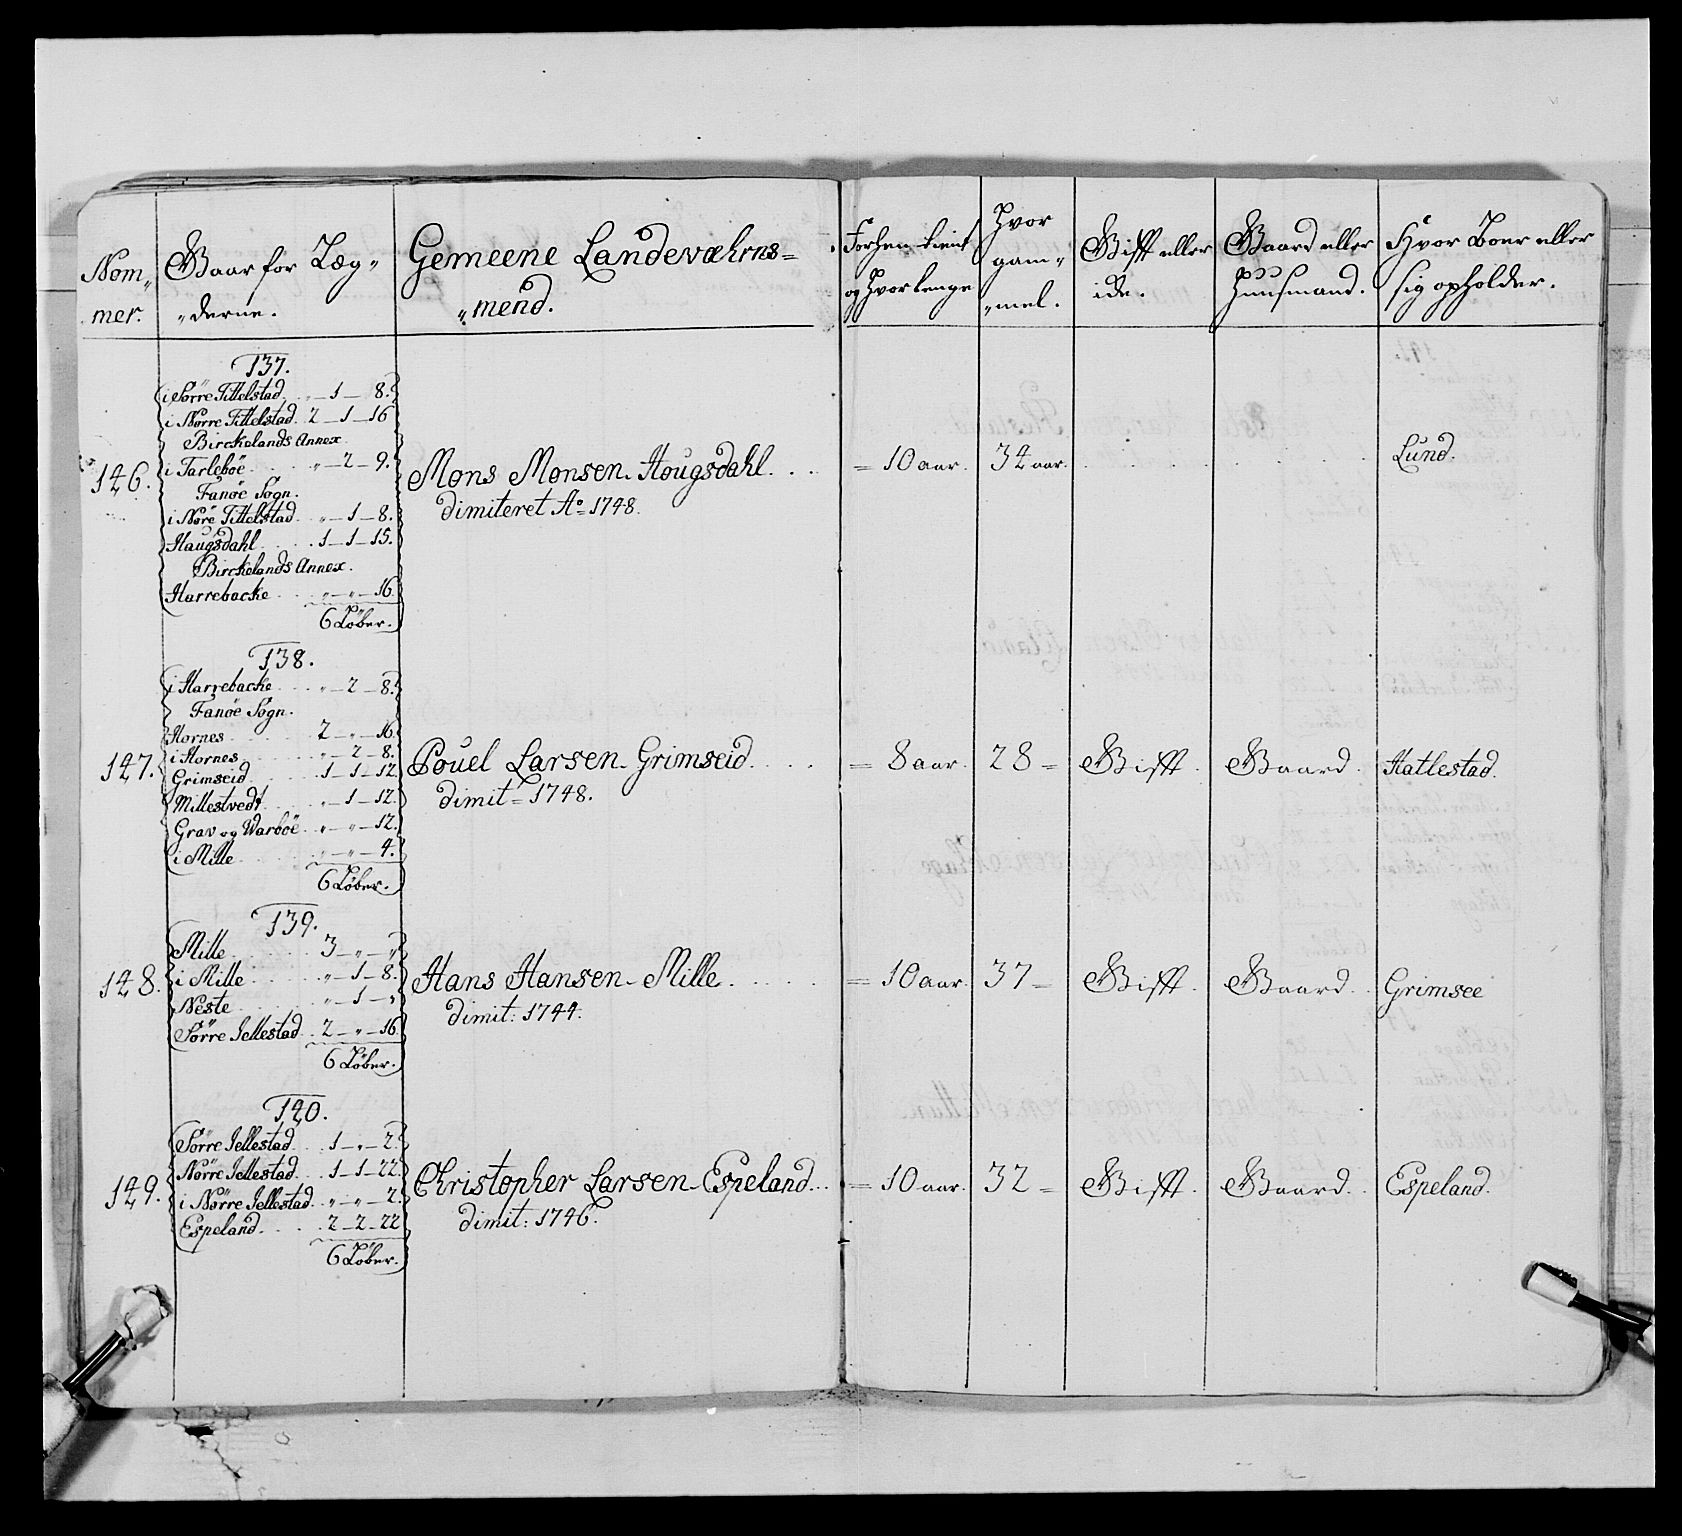 Nom„
mer.
Gaar for Læg„
„derne.
Gemeene Landevæhrns=
„mend.
Forhen tient
og hvor lenge
Hvor
gam„
„mel.
Gift eller
ide.
Gaard eller
Huusmand.
Hvor Boer eller
sig opholder.
137.
i Sørre Tittelstad. „ – 1 – 8.
i Nørre Tittelstad. 2 – 1 – 16
Birckelands Annex
i Tarleböe „ – 2 – 9.
Fanöe Sogn.
i Nøre Tittelstad „ – 1 – 8.
Haugsdahl 1 – 1 – 15.
Birckelands Annex.
Harrebacke „ – „ – 16
6 Løber.
146. Mons Monsen Hougsdahl. = 10 aar. 34 aar. Lund.
dimiteret Ao 1748.
138.
i Harrebacke „ – 2 – 8.
Fanöe Sogn.
Hornes 2 – „ – 16
i Hornes „ – 2 – 8.
Grimseid 1 – 1 – 12
Millestvedt „ – 1 – 12.
Grav og Warböe „ – „ – 12.
i Mille „ – „ – 4.
6 Løber.
147. Pouel Larsen Grimseid = 8 aar. 28 = Gift. Gaard. Hatlestad.
dimit = 1748.
139.
Mille 3 – „ – „
i Mille „ – 1 – 8.
Neste „ – 1 – „
Sørre Jellestad 2 – „ – 16
6 Løber.
148. Hans Hansen Mille = 10 aar. 37 = Gift. Gaard. Grimsee
dimit: 1744.
140.
Sørre Jellestad 1 – „ – 2.
Nørre Jellestad 1 – 1 – 22.
i Nørre Jellestad „ – „ – 2.
Espeland. 2 – 2 – 22
6 Løber.
149. Christopher Larsen Espeland = 10 aar. 32 = Gift. Gaard. Espeland.
dimit: 1746.